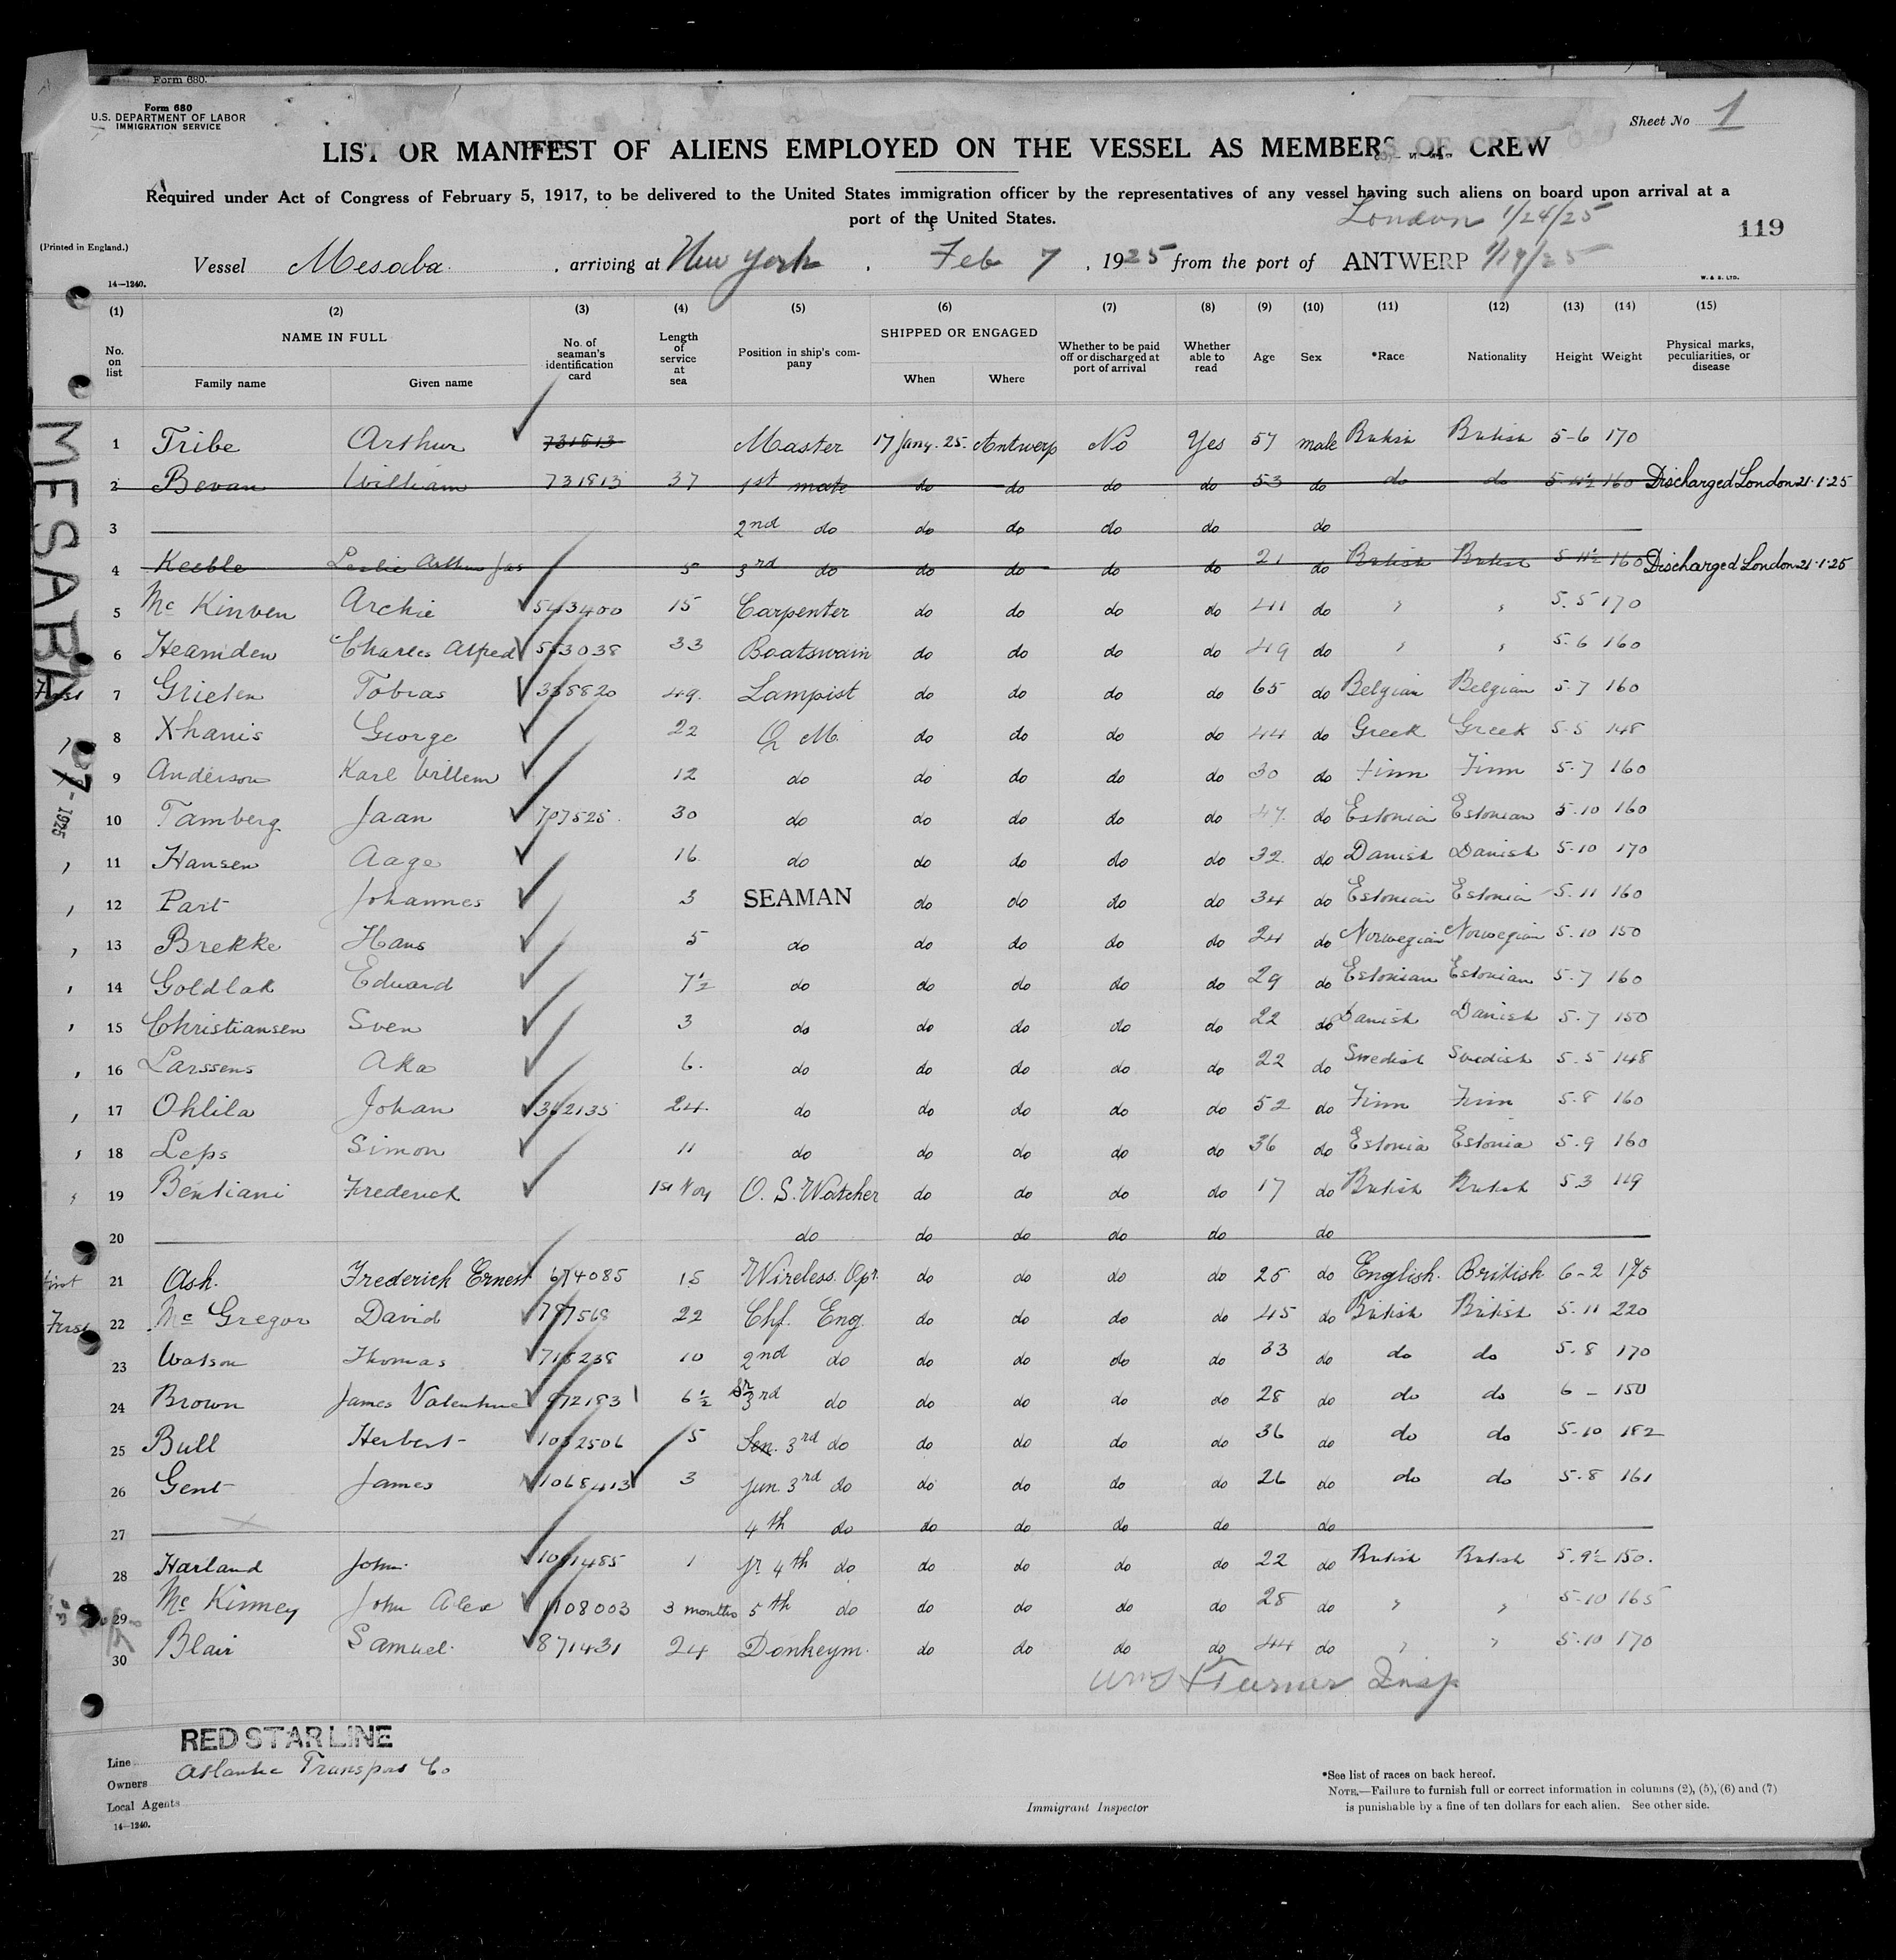 Form 680.
Form 680
U.S. DEPARTMENT OF LABOR
IMMIGRATION SERVICE
Sheet No 1
LIST OR MANIFEST OF ALIENS EMPLOYED ON THE VESSEL AS MEMBERS OF CREW
Required under Act of Congress of February 5, 1917, to be delivered to the United States immigration officer by the representatives of any vessel having such aliens on board upon arrival at a
port of the United States.
London 1/24/25
119
(Printed in England.)
Vessel Mesaba, arriving at New York, Feb 7, 1925 from the port of ANTWERP 1/19/25
14—1240.
W. & S. LTD.
(1) (2) (3) (4) (5) (6) (7) (8) (9) (10) (11) (12) (13) (14) (15)
No. on list NAME IN FULL Family name Given name No. of seaman's identification card Length of service at sea Position in ship's company SHIPPED OR ENGAGED When Where Whether to be paid off or discharged at port of arrival Whether able to read Age Sex *Race Nationality Height Weight Physical marks, peculiarities, or disease
MESABA
1 Tribe Arthur 731813 Master 17 Jany. 25. Antwerp No Yes 57 male British British 5-6 170
2 Bevan William 731813 37 1st mate do do do do 53 do do do 5-11½ 160 Discharged London 21·1·25
3 2nd do do do do do do
4 Keeble Leslie Arthur Jas 5 3rd do do do do do 21 do British British 5-11½ 160 Discharged London 21·1·25
5 Mc Kinven Archie 543400 15 Carpenter do do do do 41 do " " 5.5 170
6 Heamden Charles Alfred 553038 33 Boatswain do do do do 49 do " " 5.6 160
7 Grieten Tobias 338820 49. Lampist do do do do 65 do Belgian Belgian 5.7 160
8 Xhanis George 22 Q M. do do do do 44 do Greek Greek 5.5 148
9 Anderson Karl Willem 12 do do do do do 30 do Finn Finn 5.7 160
10 Tamberg Jaan 707525 30 do do do do do 47 do Estonia Estonian 5.10 160
7 - 1925
11 Hansen Aage 16 do do do do do 32 do Danish Danish 5.10 170
12 Part Johannes 3 SEAMAN do do do do 34 do Estonian Estonia 5.11 160
13 Brekke Hans 5 do do do do do 24 do Norwegian Norwegian 5.10 150
14 Goldlak Eduard 7½ do do do do do 29 do Estonian Estonian 5.7 160
15 Christiansen Sven 3 do do do do do 22 do Danish Danish 5.7 150
16 Larssens Aka 6. do do do do do 22 do Swedish Swedish 5.5 148
17 Ohlila Johan 362135 24. do do do do do 52 do Finn Finn 5.8 160
18 Leps Simon 11 do do do do do 36 do Estonia Estonia 5.9 160
19 Bentiani Frederick 1st Voy O. S. Watcher do do do do 17 do British British 5.3 119
20 do do do do do do
First 21 Ash. Frederick Ernest 674085 15 Wireless. Opr. do do do do 25 do English. British 6-2 175
First 22 Mc Gregor David 797568 22 Chf. Eng do do do do 45 do British British 5.11 220
23 Watson Thomas 715238 10 2nd do do do do do 33 do do do 5.8 170
24 Brown James Valentine 972183 6½ Sr 3rd do do do do do 28 do do do 6 - 150
25 Bull Herbert 1032506 5 Sen. 3rd do do do do do 36 do do do 5-10 182
26 Gent James 1068413 3 Jun. 3rd do do do do do 26 do do do 5.8 161
27 4th do do do do do do
28 Harland John. 1091485 1 Jr. 4th do do do do do 22 do British British 5.9½ 150.
29 Mc Kinney John Alex 1108003 3 months 5th do do do do do 28 do " " 5-10 165
30 Blair Samuel. 871431 24 Donkeym. do do do do 44 do " " 5.10 170
Turner Insp
RED STAR LINE
Line
Owners Atlantic Transport Co
Local Agents
14—1240.
Immigrant Inspector
*See list of races on back hereof.
NOTE.—Failure to furnish full or correct information in columns (2), (5), (6) and (7)
is punishable by a fine of ten dollars for each alien. See other side.